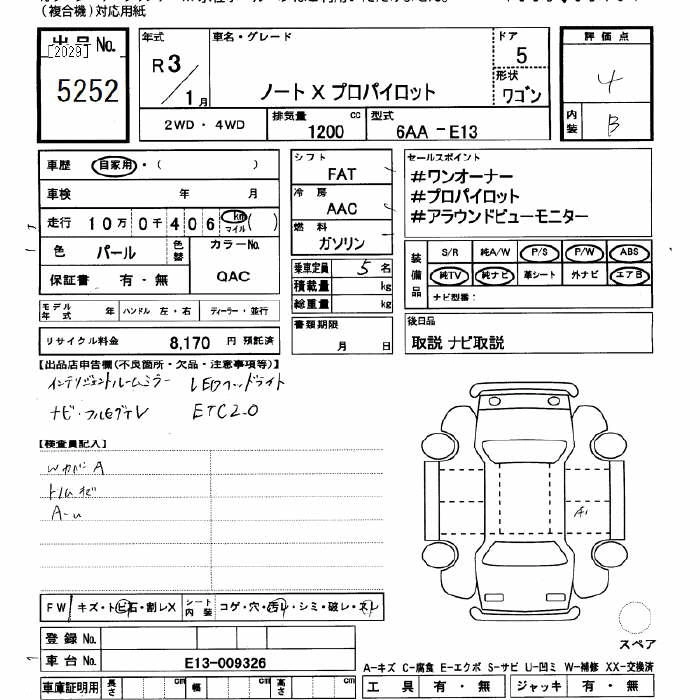 (複合機)対応用紙
出品No.
[2029]
5252
年式
R3/1月
車名・グレード
ノート X プロパイロット
ドア
5
形状
ワゴン
2WD・4WD
排気量 cc
1200
型式
6AA－E13
評価点
4
内装
B
車歴 自家用・( )
車検 年 月
走行 10万0千406 km マイル ( )
色 パール 色替 カラーNo.
QAC
保証書 有・無
モデル年式 年 ハンドル 左・右 ディーラー・並行
リサイクル料金 8,170 円 預託済
シフト
FAT
冷房
AAC
燃料
ガソリン
乗車定員 5 名
積載量 kg
総重量 kg
書類期限
月 日
セールスポイント
#ワンオーナー
#プロパイロット
#アラウンドビューモニター
装備品
S/R 純A/W P/S P/W ABS
純TV 純ナビ 革シート 外ナビ エアB
ナビ型番:
後日品
取説 ナビ取説
【出品店申告欄(不良箇所・欠品・注意事項等)】
インテリジェントルームミラー LEDヘッドライト
ナビ・フルセグTV ETC2.0
【検査員記入】
Wカバー A
A-U
A1
FW キズ・トビ石・割レX シート内装 コゲ・穴・汚レ・シミ・破レ・スレ
登録No.
車台No. E13-009326
車庫証明用 長さ cm 幅 cm 高さ cm
スペア
A-キズ C-腐食 E-エクボ S-サビ U-凹ミ W-補修 XX-交換済
工具 有・無 ジャッキ 有・無